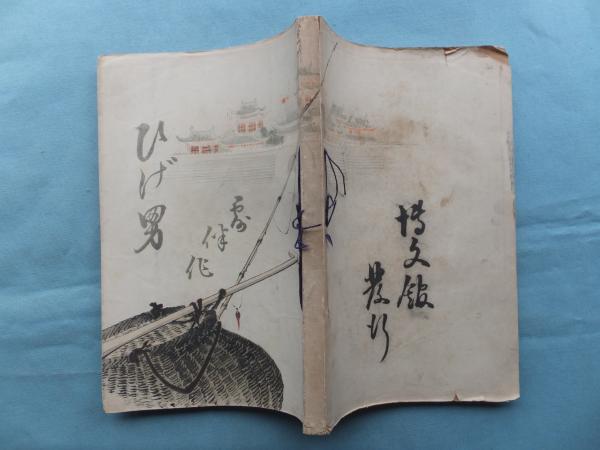 ひげ男
露伴作
博文館
発行